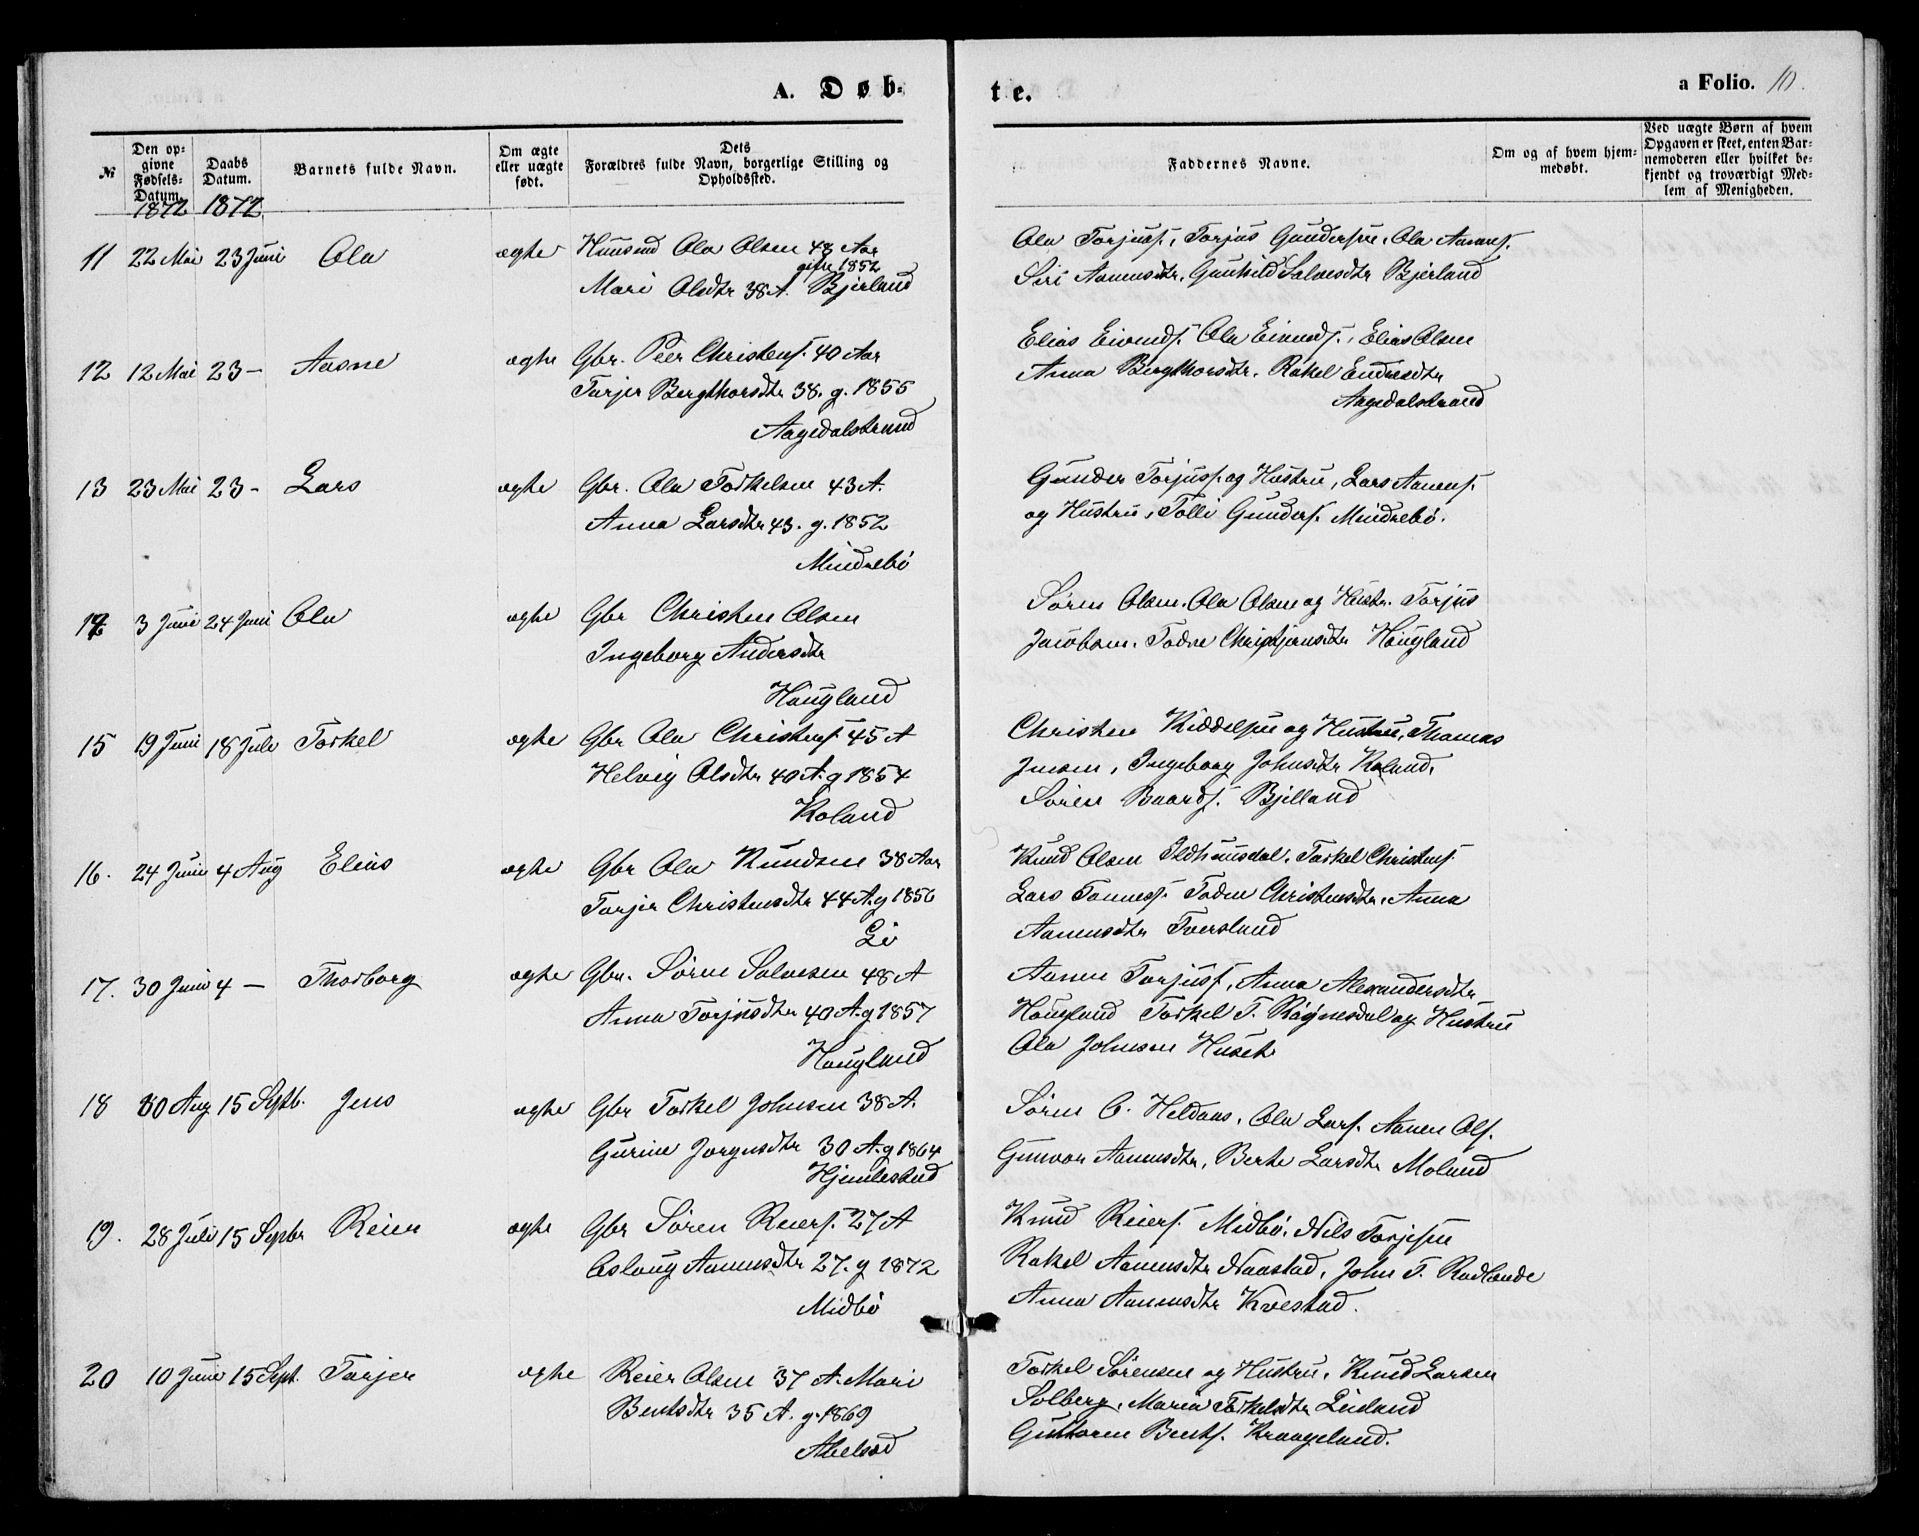 A. Døb-
te.
a Folio. 10.
№
Den op-
givne
Fødsels-
Datum.
1872
Daabs
Datum.
1872
Barnets fulde Navn.
Om ægte
eller uægte
født.
Dets
Forældres fulde Navn, borgerlige Stilling og
Opholdssted.
Faddernes Navne.
Om og af hvem hjem-
medøbt.
Ved uægte Børn af hvem
Opgaven er skeet, enten Bar-
nemoderen eller hvilket be-
kjendt og troværdigt Med-
lem af Menigheden.
11 22 Mai 23 Juni Ola ægte Huusmd Ola Olsen 48 Aar
gifte 1852
Mari Olsdtr 38 A. Bjerland
Ola Torjusf. Torjus Gundersen, Ola Aanens.
Siri Aanensdtr. Gunhild Salvesdtr Bjerland
12 12 Mai 23 – Aasne ægte Gbr. Peer Christens. 40 Aar
Torjer Bergthorsdtr 38. g. 1855
Aagedalstrand
Elias Eivinds. Ola Eivinds., Elias Olsen
Anna Bergthorsdtr. Rakel Endresdtr
Aagedalstrand
13 23 Mai 23 – Lars ægte Gbr. Ola Torkelsen 43 A.
Anna Larsdtr 43. g. 1852
Mindrebö
Gunder Torjuss. og Hustru, Lars Aanens.
og Hustru, Tolli Gunders. Mindrebö.
14 3 Juni 24 Juni Ola ægte Gbr Christen Olsen
Ingeborg Andersdtr
Hougland
Sören Olsen. Ola Olsen og Hustr. Torjus
Jacobsen. Todne Christensdtr Hougland
15 19 Juni 18 Juli Torkel ægte Gbr Ola Christens. 45 A
Helvig Olsdtr 40 A. g 1854
Roland
Christen Kiddelsen og Hustru, Thomas
Jensen, Ingeborg Johnsdtr Roland,
Sören Baards. Bjelland
16. 24 Juni 4 Aug Elias ægte Gbr Ola Knudsen 38 Aar
Torjer Christensdtr 44 A. g 1856
Li
Knud Olsen Ildhuusdal, Torkel Christens.
Lars Tønness. Todne Christensdtr, Anna
Aanensdtr Tversland
17. 30 Juni 4 – Thorborg ægte Gbr. Sören Salvesen 48 A
Anna Torjusdtr 40 A. g 1857
Hougland
Aanen Torjuss, Anna Alexandersdtr
Hougland Torkel T. Røgnesdal og Hustru
Ola Johnsen Huset
18 30 Aug 15 Septb. Jens ægte Gbr Torkel Johnsen 38 A.
Gurine Jørgensdtr 30 A. g 1864
Hjemlestad
Sören C. Heldaas, Ola Lars. Aanen Ols.
Gunvor Aanensdtr, Berte Larsdtr Moland
19. 28 Juli 15 Septbr Reier ægte Gbr Sören Reiers. 27 A
Aslaug Aanensdtr 27. g 1872
Midbö
Knud Reiers. Midbö, Nils Torjesen
Rakel Aanensdtr Naastad, John T. Rødlande
Anna Aanensdtr Kvestad.
20 10 Juni 15 Sept. Torjer ægte Reier Olsen 37 A. Mari
Bentsdtr 35 A. g. 1869
Abelsød
Torkel Sörensen og Hustru, Knud Larsen
Solberg, Maria Torkelsdtr Leiland
Guttorm Bents. Kraageland.